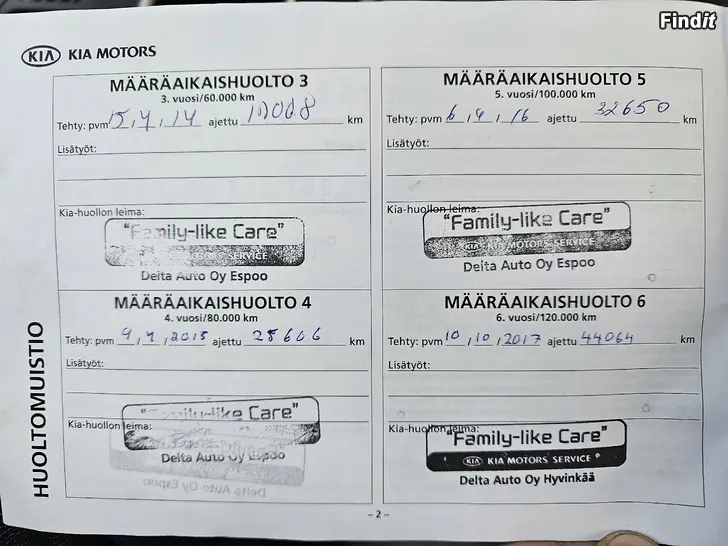 Findit
KIA KIA MOTORS
MÄÄRÄAIKAISHUOLTO 3
3. vuosi/60.000 km
Tehty: pvm 15,4,14 ajettu km
Lisätyöt:
Kia-huollon leima:
"Family-like Care"
SERVICE
Delta Auto Oy Espoo
MÄÄRÄAIKAISHUOLTO 5
5. vuosi/100.000 km
Tehty: pvm 6,4,16 ajettu 32650 km
Lisätyöt:
Kia-huollon leima:
"Family-like Care"
KIA KIA MOTORS SERVICE
Delta Auto Oy Espoo
MÄÄRÄAIKAISHUOLTO 4
4. vuosi/80.000 km
Tehty: pvm 9,4,2015 ajettu 25606 km
Lisätyöt:
Kia-huollon leima:
"Family-like Care"
Delta Auto Oy Espoo
Delta Auto Oy Espoo
MÄÄRÄAIKAISHUOLTO 6
6. vuosi/120.000 km
Tehty: pvm 10,10,2017 ajettu 44064 km
Lisätyöt:
Kia-huollon leima:
"Family-like Care"
KIA KIA MOTORS SERVICE
Delta Auto Oy Hyvinkää
HUOLTOMUISTIO
– 2 –